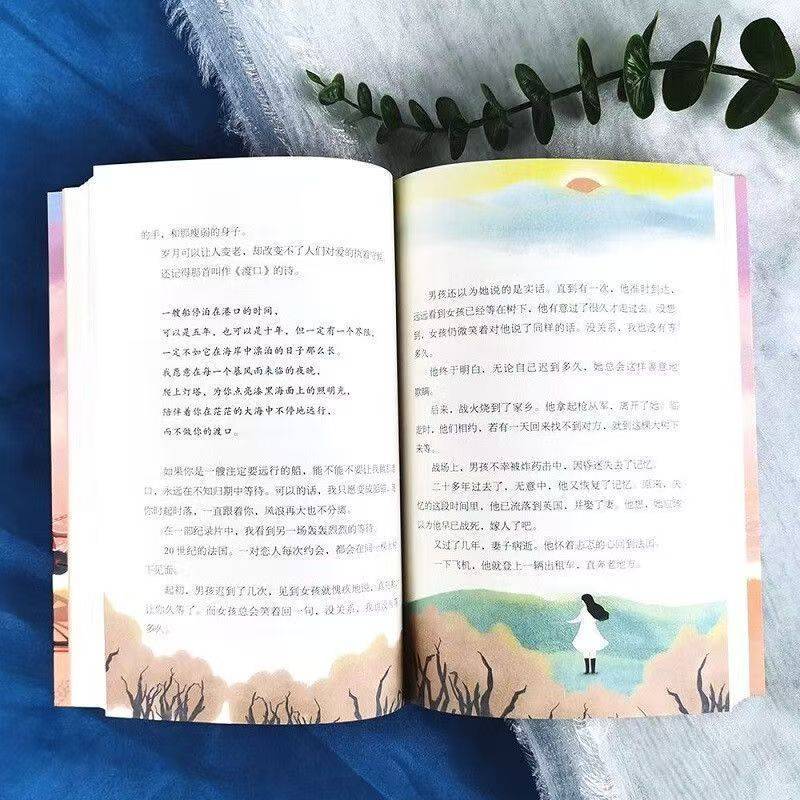 的手，和那瘦弱的身子。
岁月可以让人变老，却改变不了人们对爱的执着
还记得那首叫作《渡口》的诗。
一艘船停泊在港口的时间，
可以是五年，也可以是十年，但一定有一个界限，
一定不如它在海岸中漂泊的日子那么长。
我愿意在每一个暴风雨来临的夜晚，
爬上灯塔，为你点亮漆黑海面上的照明光，
陪伴着你在茫茫的大海中不停地远行，
而不做你的渡口。
如果你是一艘注定要远行的船，能不能不要让我做
口，永远在不知归期中等待。可以的话，我只愿变成
你时起时落，一直跟着你，风浪再大也不分离。
在一部纪录片中，我看到另一场轰轰烈烈的等待。
20世纪的法国。一对恋人每次约会，都会在同一棵
下见面。
起初，男孩迟到了几次，见到女孩就愧疚地说，真
让你久等了。而女孩总会笑着回一句，没关系，我也没有
多久。
男孩还以为她说的是实话。直到有一次，他准时到达，
远远看到女孩已经等在树下，他有意过了很久才走过去。没想
到，女孩仍微笑着对他说了同样的话。没关系，我也没有等
多久。
他终于明白，无论自己迟到多久，她总会这样善意地
欺瞒。
后来，战火烧到了家乡。他拿起枪从军，离开了她。临
走时，他们相约，若有一天回来找不到对方，就到这棵大树下
来等。
战场上，男孩不幸被炸药击中，因昏迷失去了记忆。
二十多年过去了，无意中，他又恢复了记忆。原来，失
忆的这段时间里，他已流落到英国，并娶了妻。他想，她应该
以为他早已战死，嫁人了吧。
又过了几年，妻子病逝。他怀着忐忑的心回到法国。
一下飞机，他就登上一辆出租车，直奔老地方。